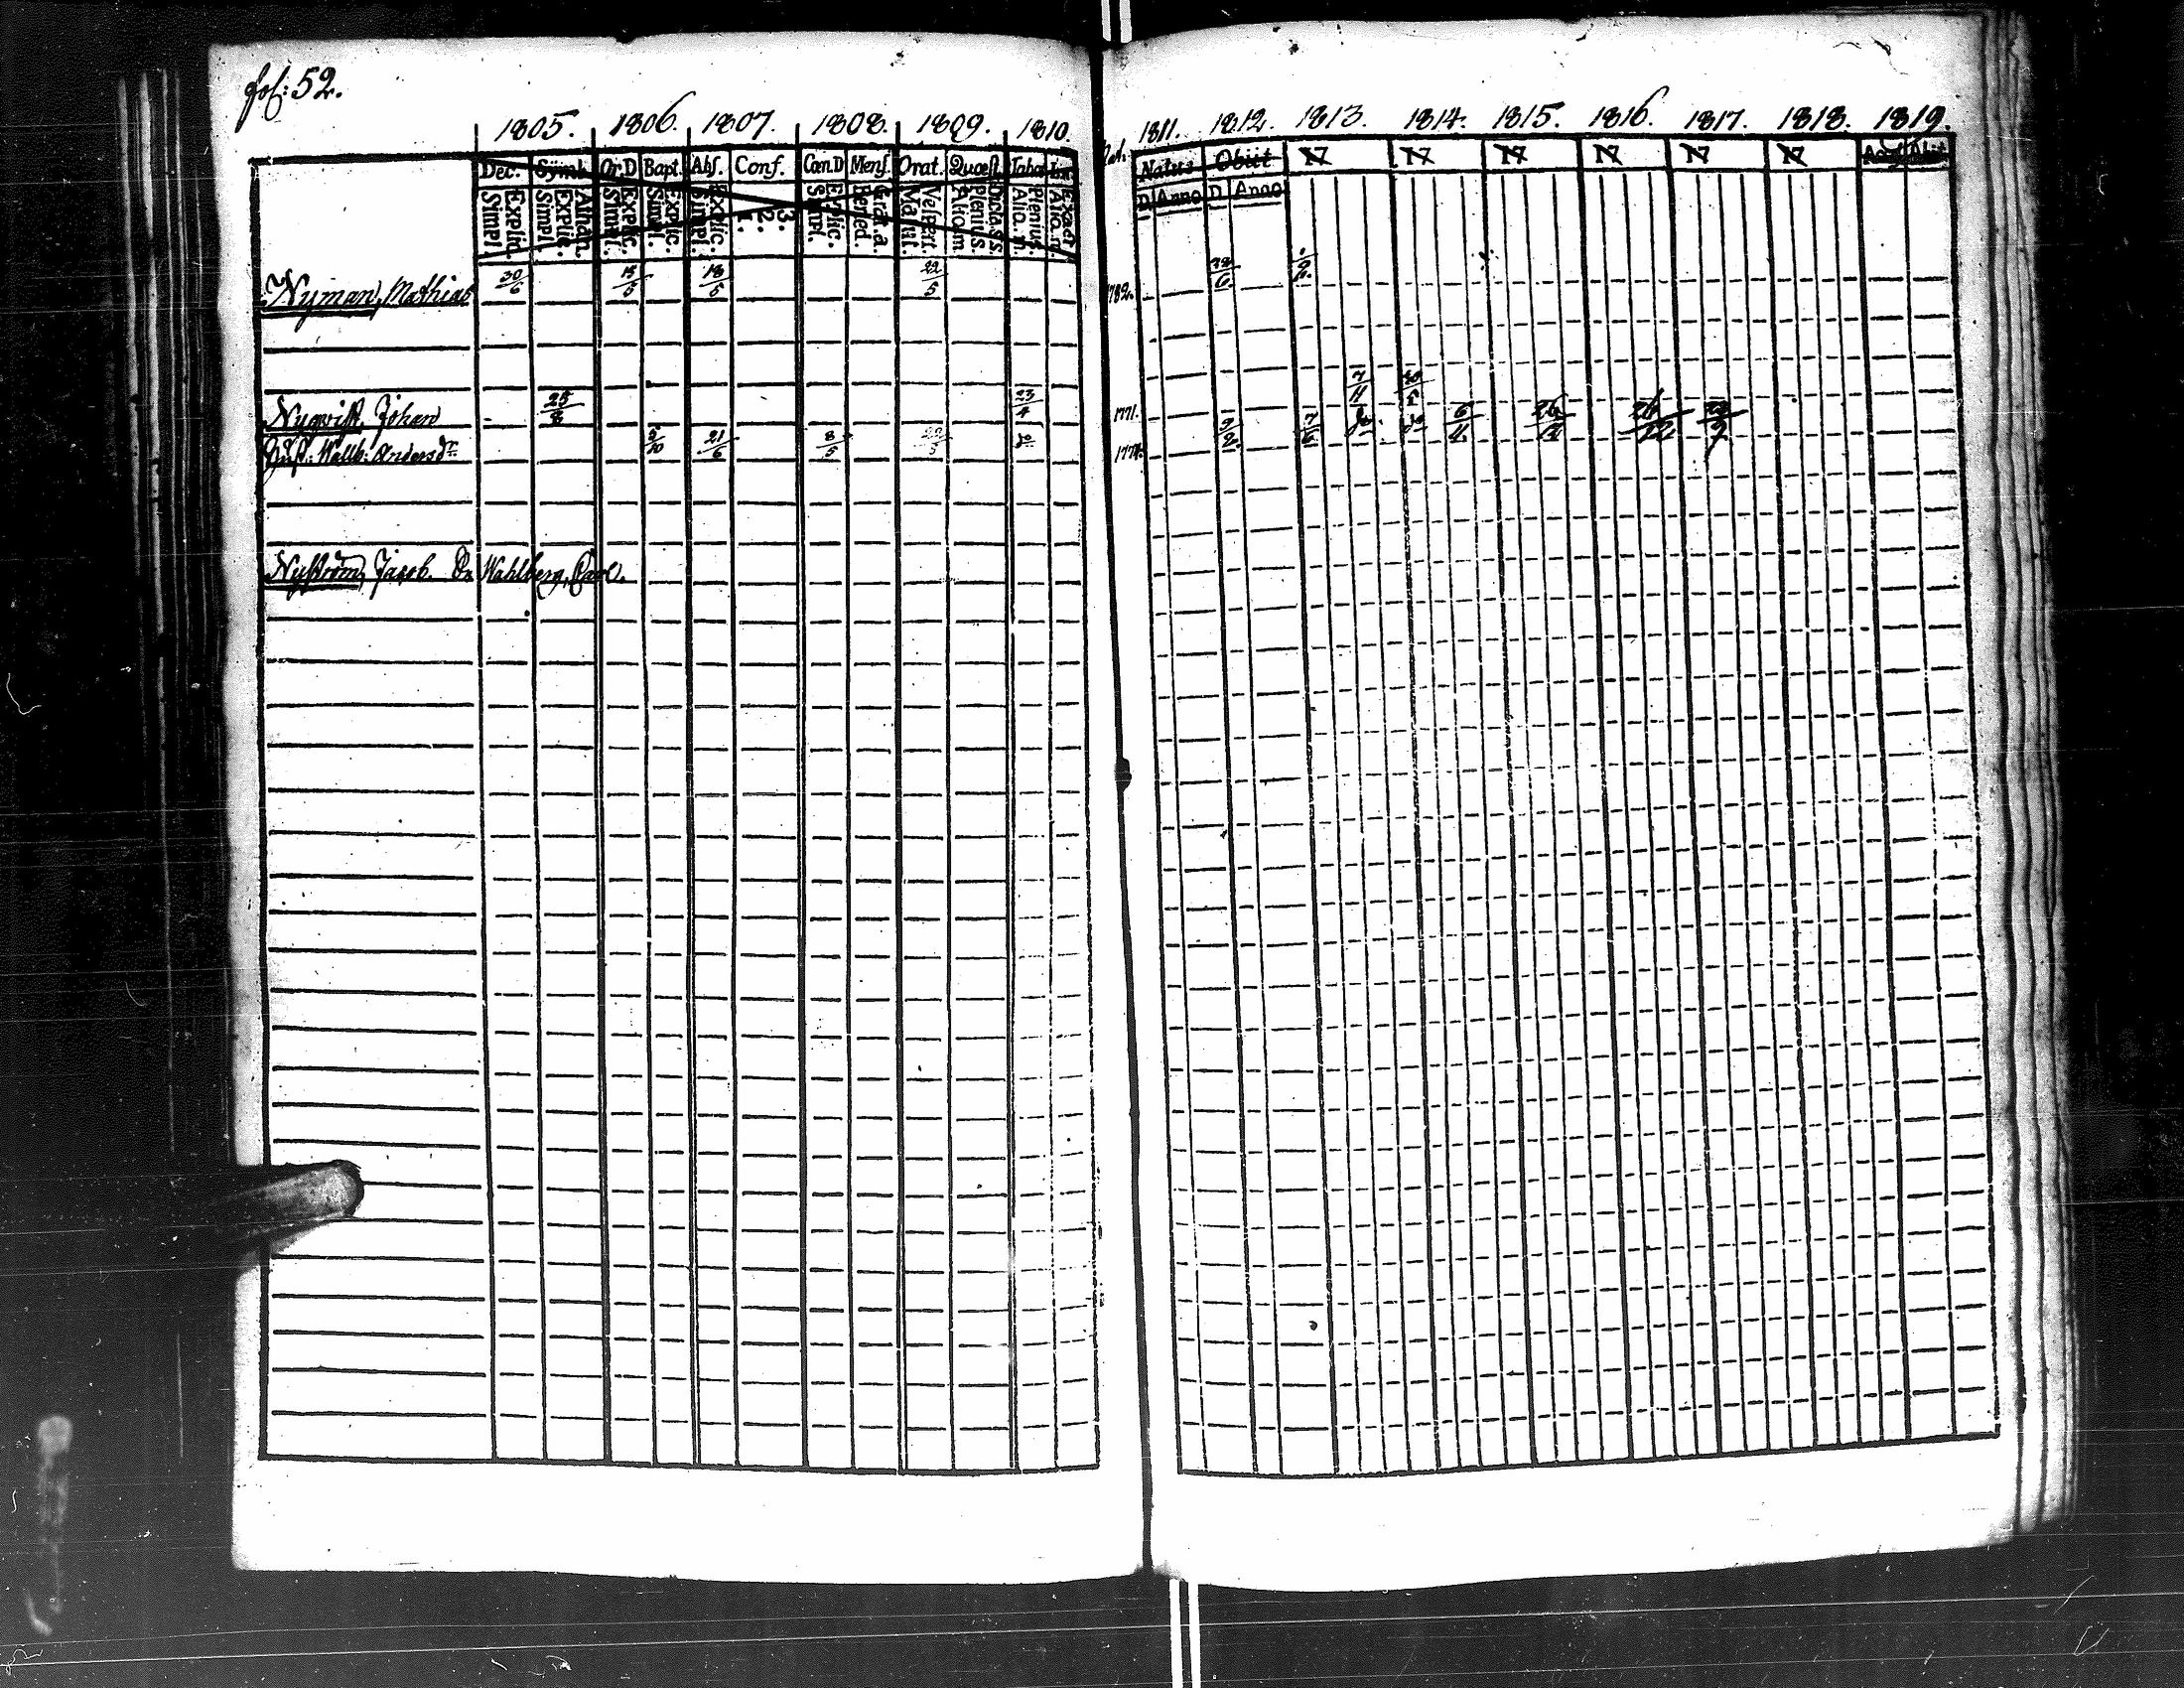 fol: 52.
1805. 1806. 1807. 1808. 1809. 1810.
Dec. Symb. Or.D Bapt. Abs. Conf. Cœn.D Mens. Orat. Quæst.
Explic. Simpl.
Athan. Explic. Simpl.
Explic. Simpl.
Explic. Simpl.
Explic. Simpl.
3. 2. 1.
Explic. Simpl.
Grat.a. Bened.
Vespert. Matut.
Plenius. Aliqm.
Plenius. Aliq.m.
Exact. Aliq.m.
Nyman, Mathias 30/6 15/5 18/5 22/5
Nyqvist, Johan 25/8 23/4
Hust: Wallb: Andersdr 5/10 21/6 8/5 22/5 do
Nyström, Jacob. Vr. Wahlberg, Carl.
1811. 1812. 1813. 1814. 1815. 1816. 1817. 1818. 1819.
Nat. Natus Obiit N N N N N N Abiit
D Anno D Anno
1782.
7/11
1771.
9/2 7/6 do do 6/4 26/12
1774.